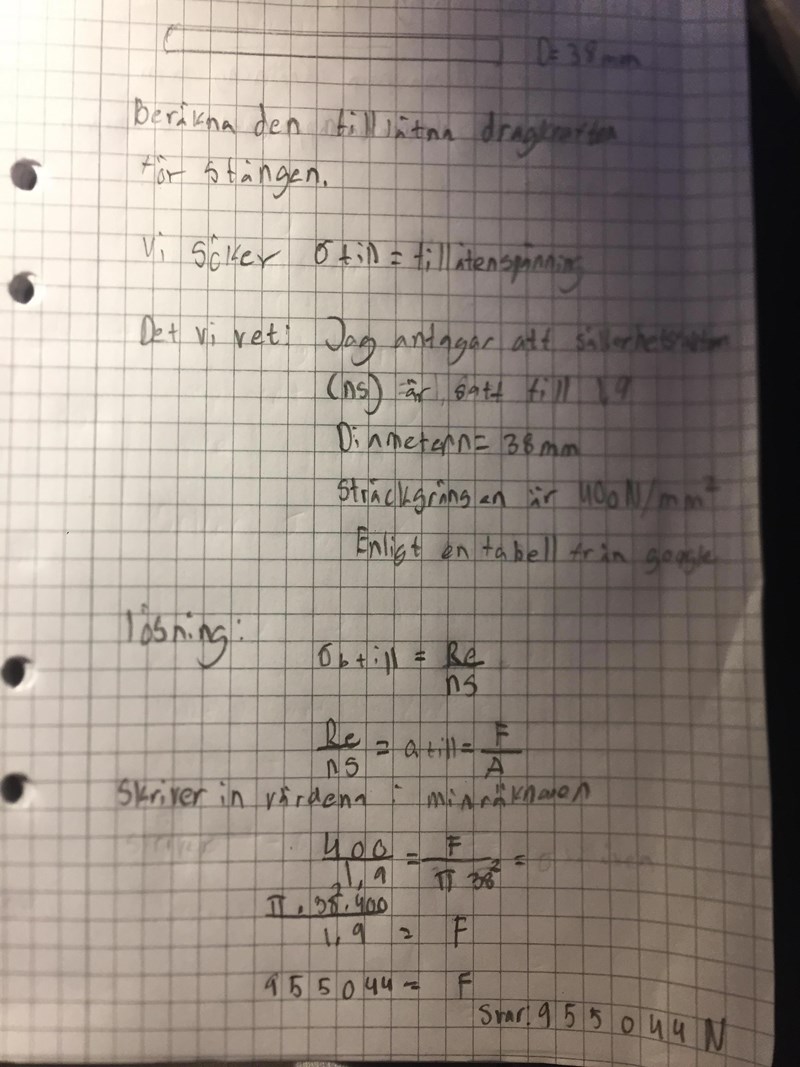 D= 38mm
Beräkna den tillåtna dragkraften
för stången.
Vi söker σ till = tillåtenspänning
Det vi vet: Jag antagar att säkerhetsfaktorn
(ns) är satt till 1,9
Diametern= 38mm
Sträckgränsen är 400N/mm²
Enligt en tabell från google
lösning:
σb till = Re/ns
Re/ns = σ till = F/A
Skriver in värdena i miniräknaren
400/1,9 = F/π 38² =
π . 38² . 400/1,9 = F
955044 = F
Svar: 955044 N